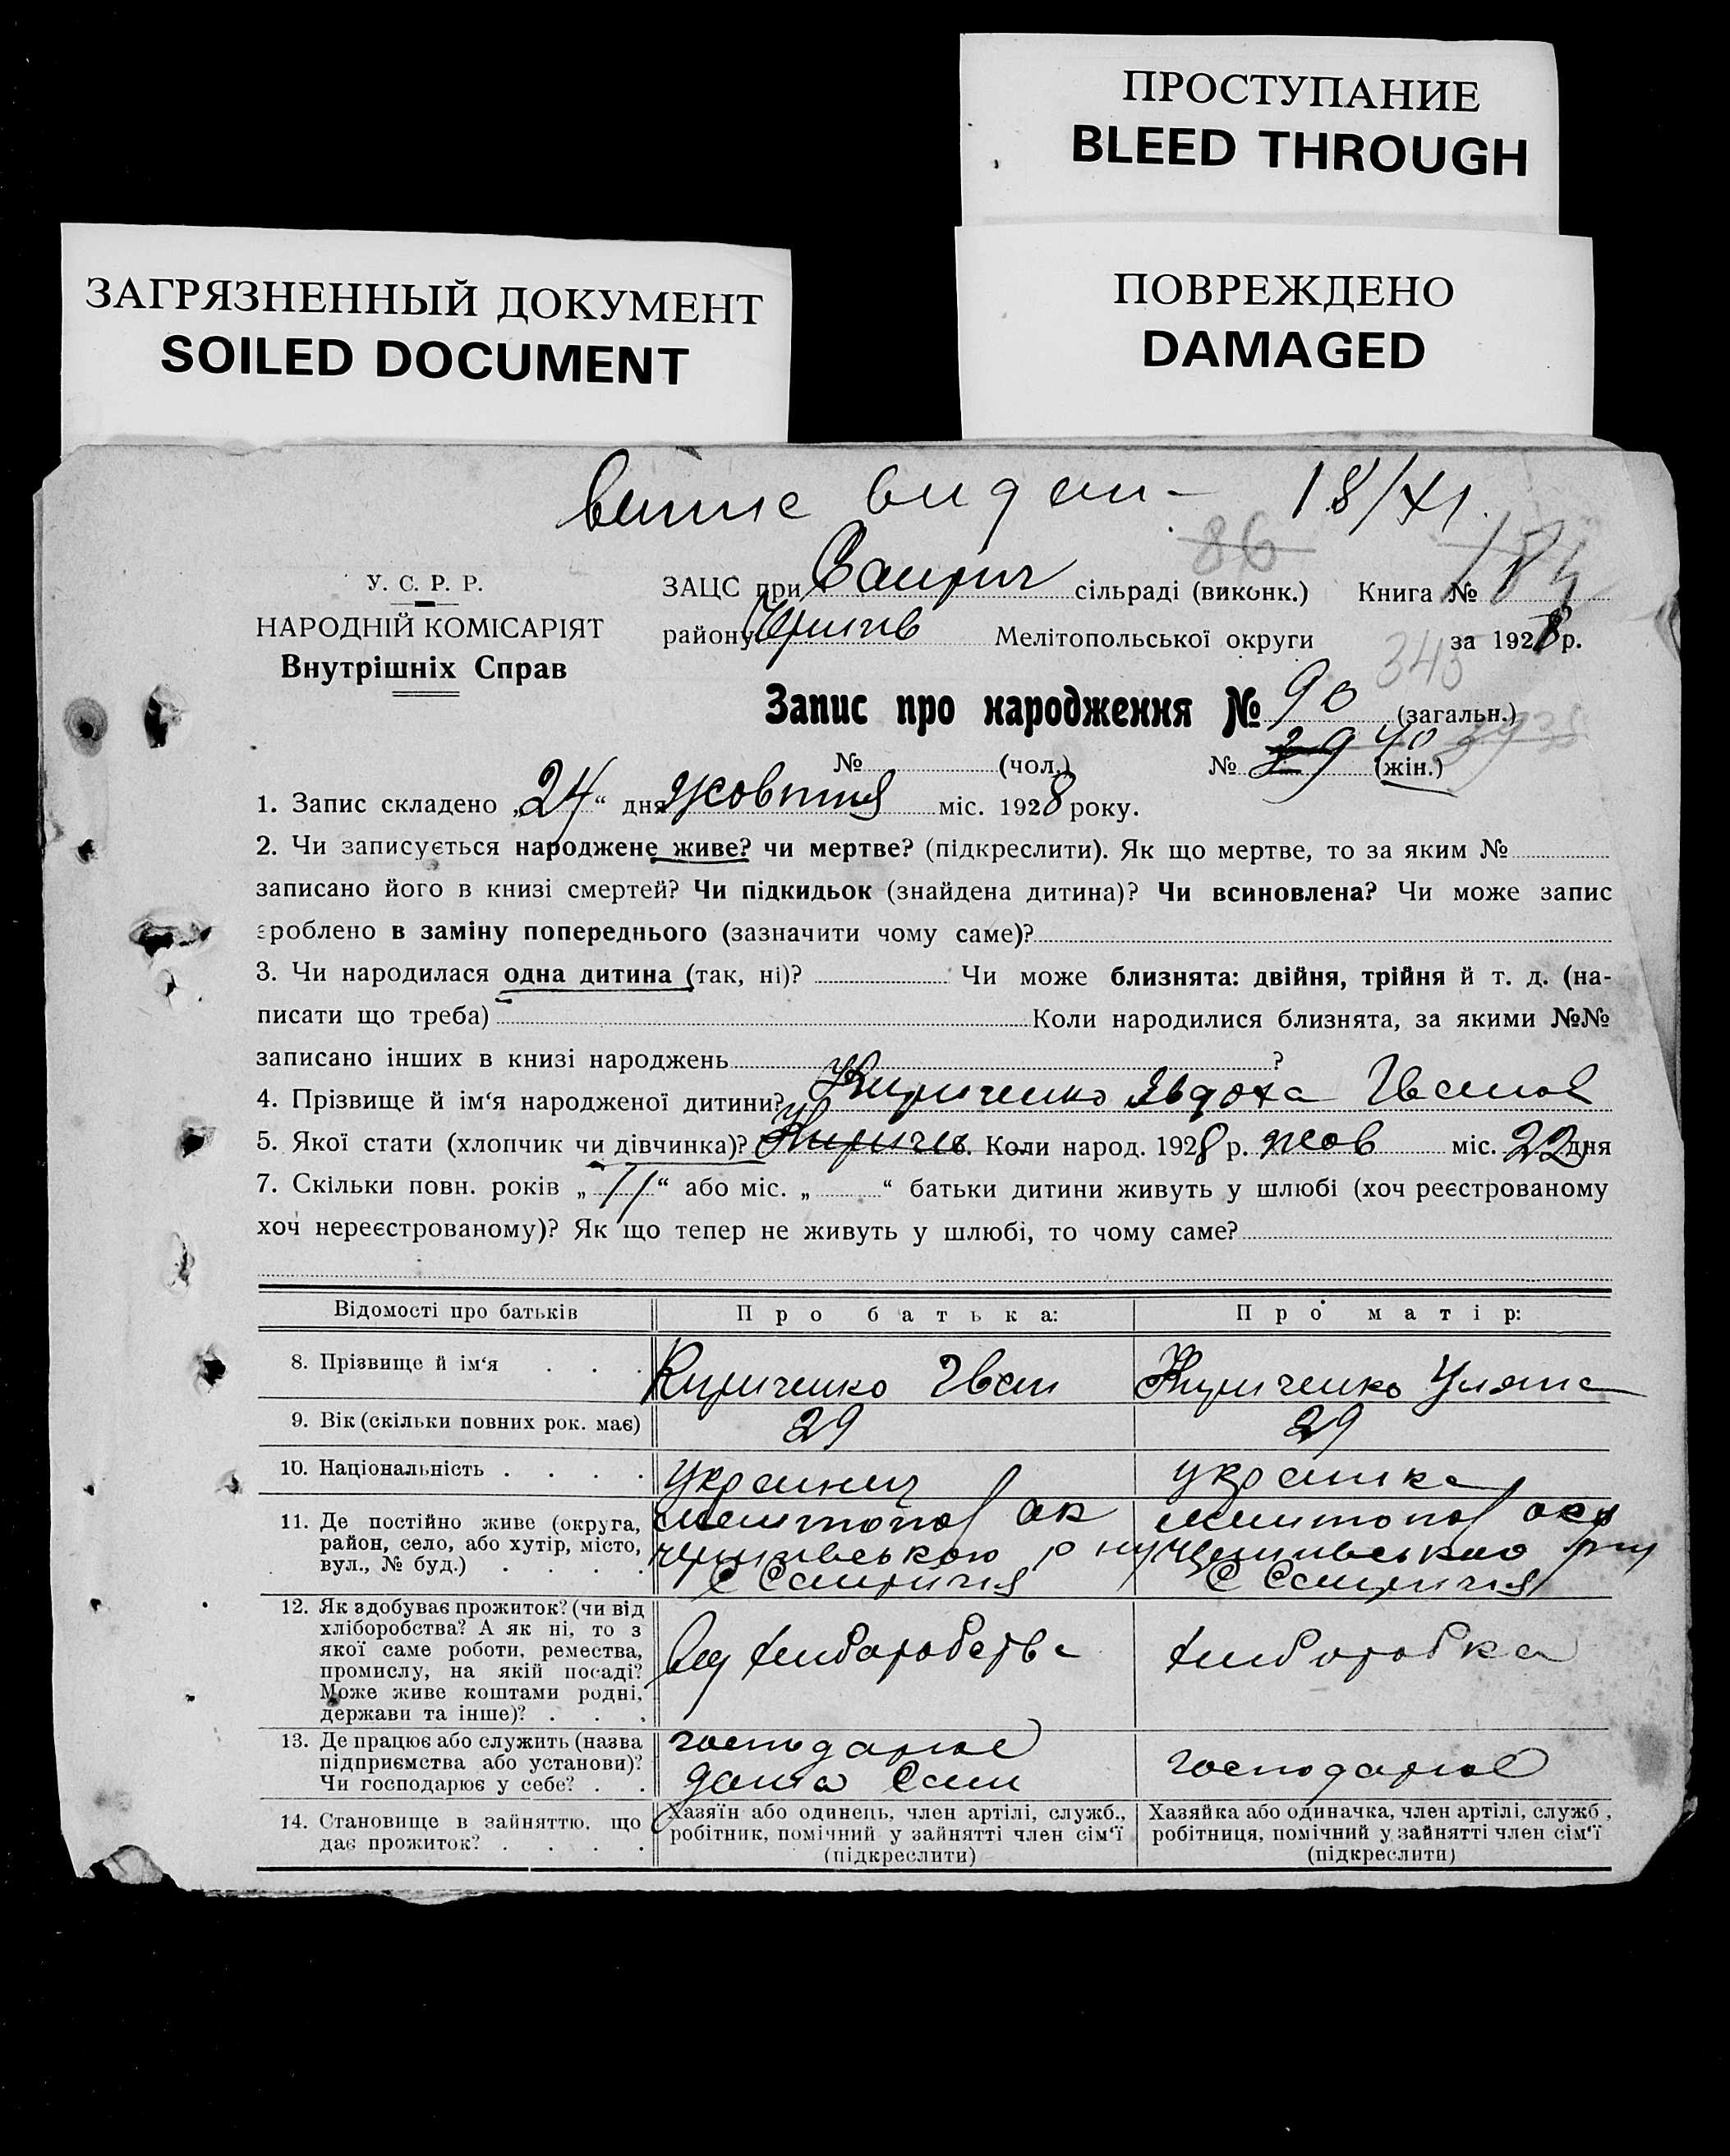 ПРОСТУПАНИЕ
BLEED THROUGH
ЗАГРЯЗНЕННЫЙ ДОКУМЕНТ
SOILED DOCUMENT
ПОВРЕЖДЕНО
DAMAGED
видан - 18/XI.
86
У. С. Р. Р.
НАРОДНІЙ КОМІСАРІЯТ
Внутрішніх Справ
ЗАЦС при сільраді (виконк.) Книга № 184
району Мелітопольської округи за 1928 р.
345
Запис про народження № 90 (загальн.)
№ (чол.) № 39 40 (жін.)
1. Запис складено „24“ дня жовтня міс. 1928 року.
2. Чи записується народжене живе? чи мертве? (підкреслити). Як що мертве, то за яким №
записано його в книзі смертей? Чи підкидьок (знайдена дитина)? Чи всиновлена? Чи може запис
зроблено в заміну попереднього (зазначити чому саме)?
3. Чи народилася одна дитина (так, ні)? Чи може близнята: двійня, трійня й т. д. (на-
писати що треба) Коли народилися близнята, за якими №№
записано інших в книзі народжень ?
4. Прізвище й ім‘я народженої дитини? Кириченко Явдоха Іванов
5. Якої стати (хлопчик чи дівчинка)? Коли народ. 1928 р. жов міс. 22 дня
7. Скільки повн. років „11“ або міс. „ “ батьки дитини живуть у шлюбі (хоч реєстрованому
хоч нереєстрованому)? Як що тепер не живуть у шлюбі, то чому саме?
Відомості про батьків Про батька: Про матір:
8. Прізвище й ім‘я . . . Кириченко Іван Кириченко Уляна
9. Вік (скільки повних рок. має) 29 29
10. Національність . . . . українец українка
11. Де постійно живе (округа,
район, село, або хутір, місто,
вул., № буд.) . . . .
мелитопол ок
с
мелитопол окр
с
12. Як здобуває прожиток? (чи від
хліборобства? А як ні, то з
якої саме роботи, ремества,
промислу, на якій посаді?
Може живе коштами родні,
держави та інше)? . . .
від хлиборобства
хлиборобка
13. Де працює або служить (назва
підприємства або установи)?
Чи господарює у себе? . .
господарює
дома сам
господарює
14. Становище в зайняттю, що
дає прожиток? . . . .
Хазяїн або одинець, член артілі, служб.,
робітник, помічний у зайнятті член сім‘ї
(підкреслити)
Хазяйка або одиначка, член артілі, служб,
робітниця, помічний у зайнятті член сім‘ї
(підкреслити)